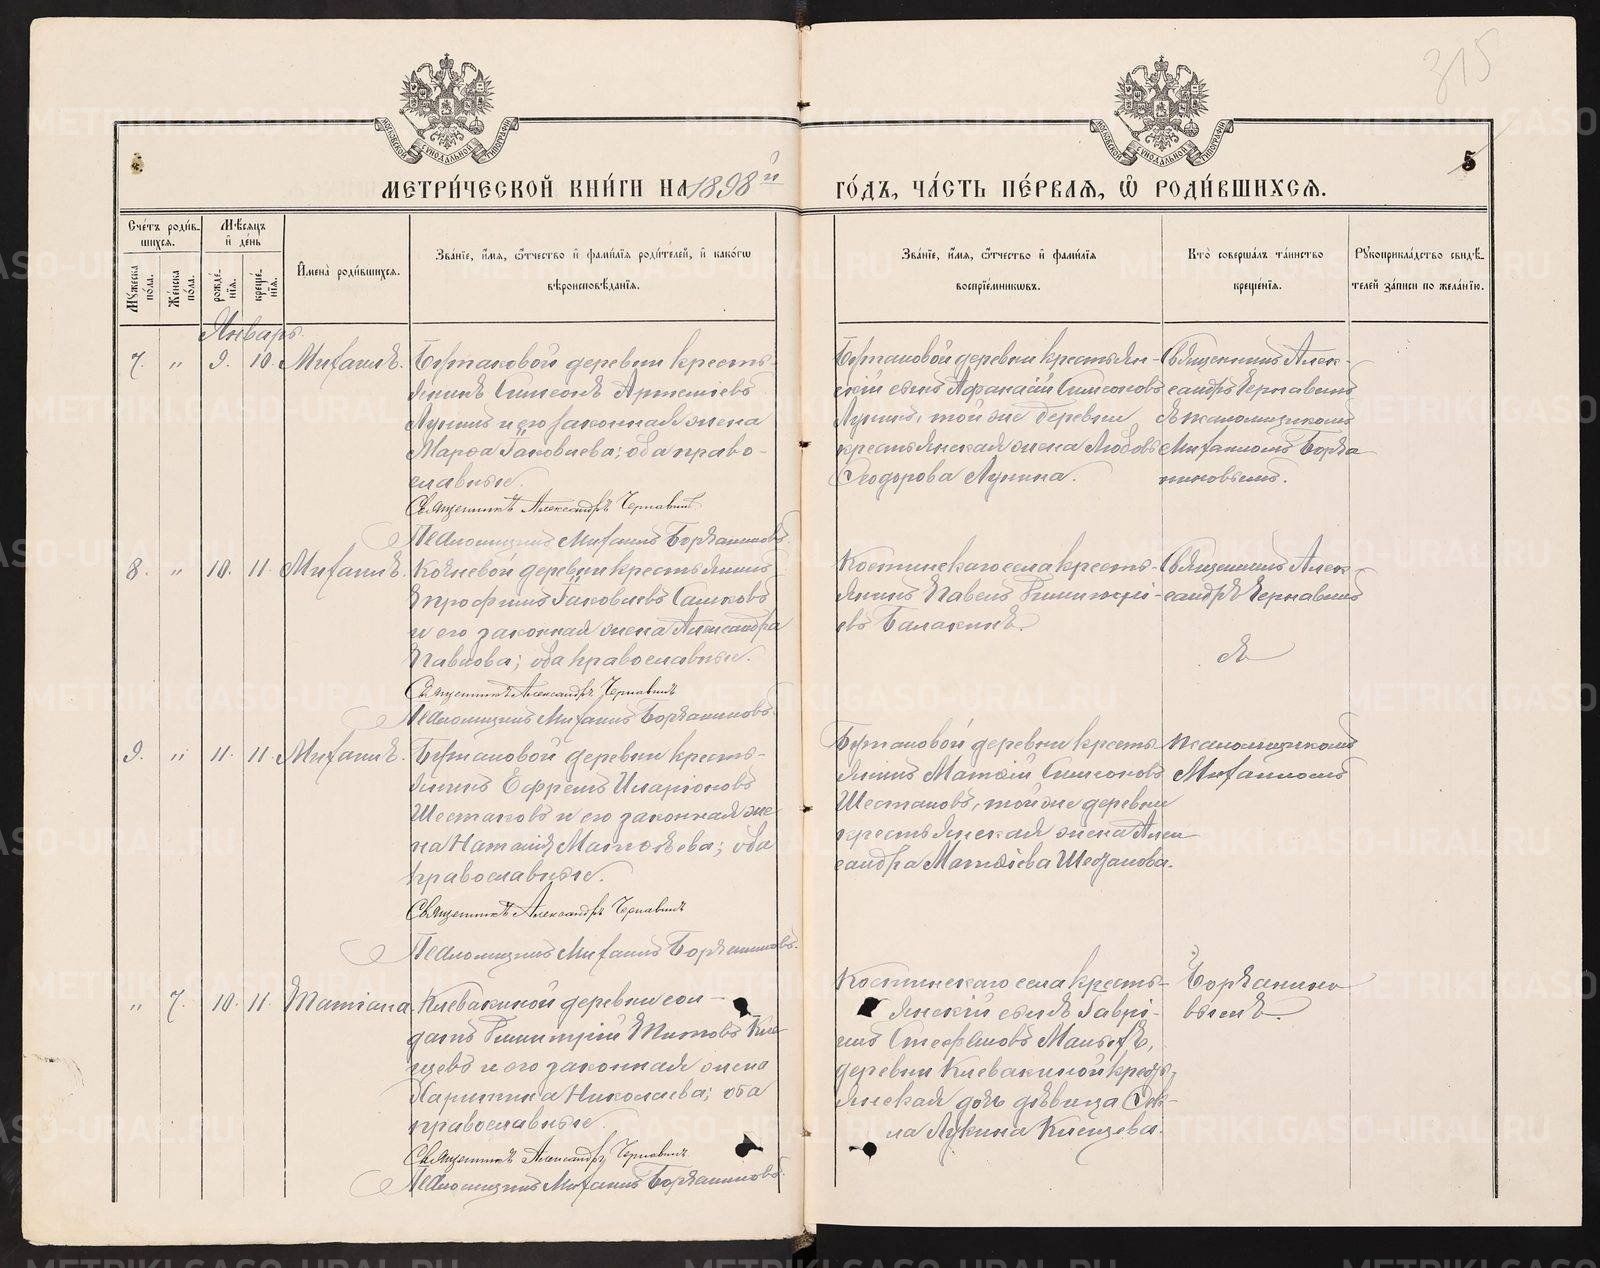 315
5
МЕТРИ́ЧЕСКОЙ КНИ́ГИ НА 1898 й
ГО́ДЪ, ЧА́СТЬ ПЕ́РВАЯ, Ѡ РОДИ́ВШИХСЯ.
Сче́тъ роди́вшихся.
Му́жеска по́ла.
Же́нска по́ла.
Мѣ́сяцъ и҆ де́нь
рожде́нїя.
креще́нїя.
И҆мена̀ роди́вшихся.
Зва́нїе, и҆́мя, ѻ҆́тчество и҆ фами́лїя роди́телей, и҆ како́гѡ
вѣроисповѣ́данїя.
Зва́нїе, и҆́мя, ѻ҆́тчество и҆ фами́лїя
воспрїе́мникѡвъ.
Кто̀ соверша́лъ та́инство
креще́нїя.
Рꙋкоприкла́дство свидѣ́-
телей за́писи по жела́нїю.
Январь.
7. " 9. 10. Михаилъ.
Бурмаковой деревни кресть-
янинъ Симеонъ Артемiевъ
Лунинъ и его законная жена
Марѳа Iаковлева; оба право-
славные.
Священникъ Александръ Чернавинъ
Псаломщикъ Михаилъ
деревни крестьян-
скiй сынъ Аѳанасiй Симеоновъ
Лунинъ, той же деревни
крестьянская жена Любовь
Ѳеодорова Лунина.
Священникъ Алек-
сандръ Чернавинъ
съ псаломщикомъ
Михаиломъ
8. " 10. 11. Михаилъ.
деревни крестьянинъ
Iаковлевъ
и его законная жена Александра
Павлова; оба православные.
Священникъ Александръ Чернавинъ
Псаломщикъ Михаилъ
Костинскаго села кресть-
янинъ Павелъ Димитрi-
евъ Балакинъ.
Священникъ Алек-
сандръ Чернавинъ
съ
9. " 11. 11. Михаилъ.
деревни кресть-
янинъ Ефремъ Иларiоновъ
Шестаковъ и его законная же-
на Наталiя Матѳеева; оба
православные.
Священникъ Александръ Чернавинъ
Псаломщикъ Михаилъ
деревни кресть-
янинъ Матѳiй Симеоновъ
Шестаковъ, той же деревни
крестьянская жена Алек-
сандра Матѳiева Шестакова.
псаломщикомъ
Михаиломъ
" 7. 10. 11. Татiана.
Клевакиной деревни сол-
датъ Димитрiй Титовъ Кле-
щевъ и его законная жена
Харитина Николаева; оба
православные.
Священникъ Александръ Чернавинъ
Псаломщикъ Михаилъ
Костинскаго села кресть-
янскiй сынъ Гаврi-
илъ Стефановъ
деревни Клевакиной кресть-
янская дочь дѣвица Ѳек-
ла Лукина Клещева.
METRIKI.GASO-URAL.RU